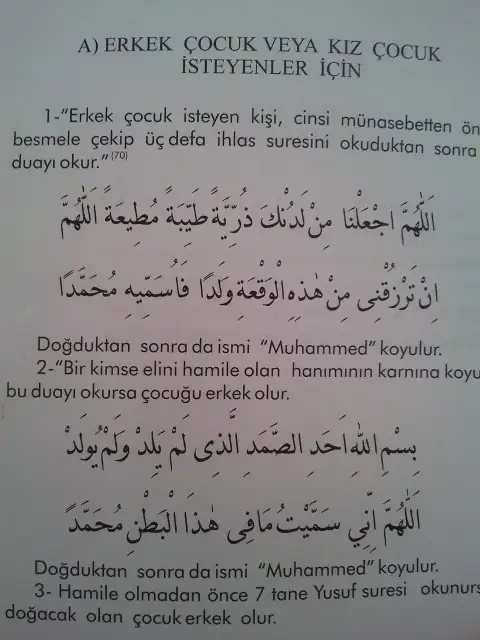 A) ERKEK ÇOCUK VEYA KIZ ÇOCUK
İSTEYENLER İÇİN
1-“Erkek çocuk isteyen kişi, cinsi münasebetten ön
besmele çekip üç defa ihlas suresini okuduktan sonra
duayı okur.”(70)
اَللّٰهُمَّ اجْعَلْنَا مِنْ لَدُنْكَ ذُرِّيَّةً طَيِّبَةً مُطِيعَةً اَللّٰهُمَّ
اِنْ تَرْزُقْنِى مِنْ هٰذِهِ الْوَقْعَةِ وَلَدًا فَاُسَمِّيهِ مُحَمَّدًا
Doğduktan sonra da ismi “Muhammed” koyulur.
2-“Bir kimse elini hamile olan hanımının karnına koyu
bu duayı okursa çocuğu erkek olur.
بِسْمِ اللّٰهِ اَحَدِ الصَّمَدِ الَّذِى لَمْ يَلِدْ وَلَمْ يُولَدْ
اَللّٰهُمَّ اِنِّي سَمَّيْتُ مَا فِى هٰذَا الْبَطْنِ مُحَمَّدً
Doğduktan sonra da ismi “Muhammed” koyulur.
3- Hamile olmadan önce 7 tane Yusuf suresi okunurs
doğacak olan çocuk erkek olur.